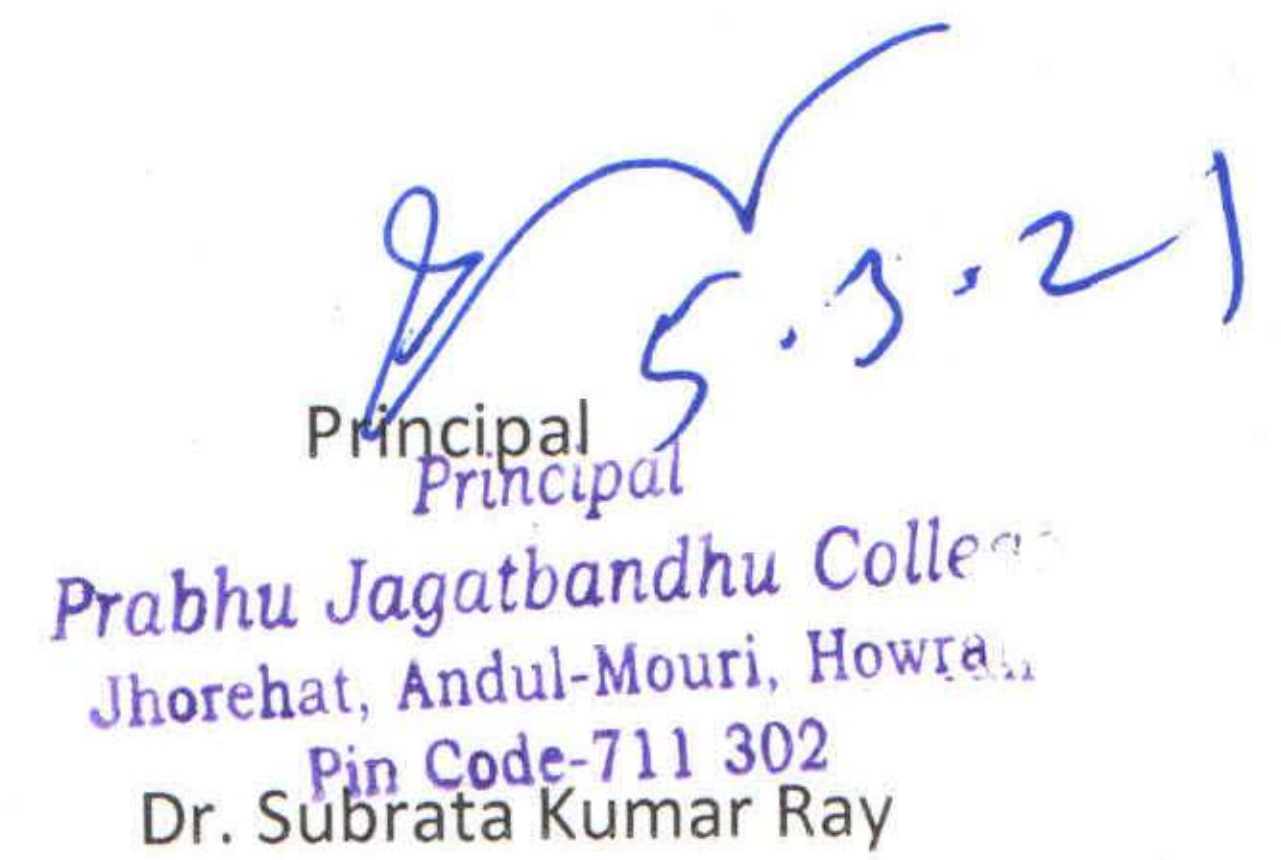 5.3.21
Principal
Principal
Prabhu Jagatbandhu College
Jhorehat, Andul-Mouri, Howrah
Pin Code-711 302
Dr. Subrata Kumar Ray